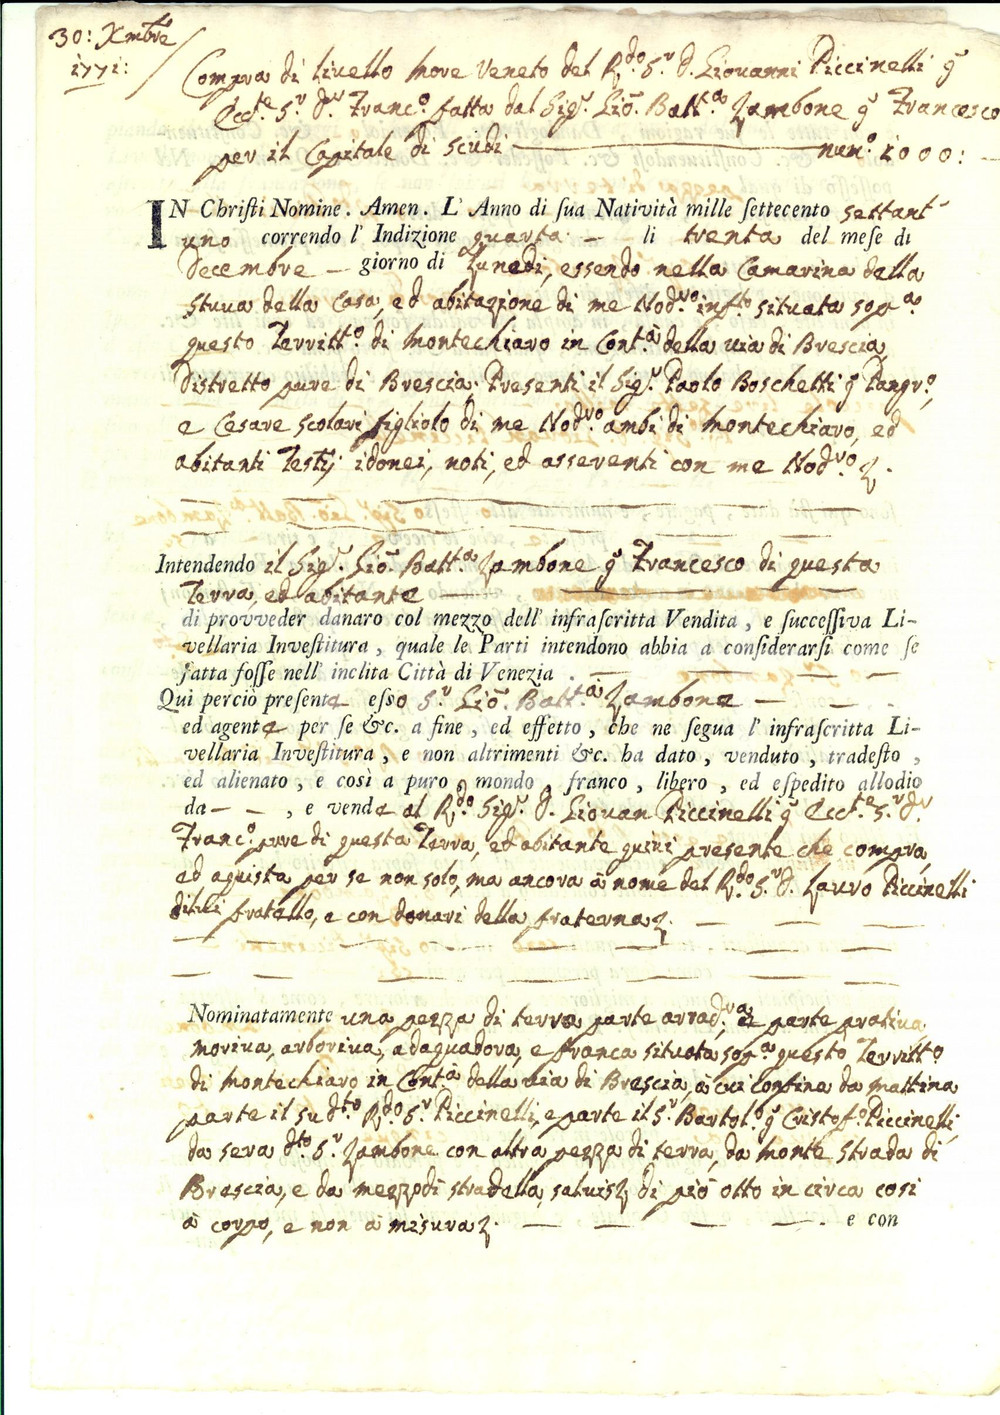 30: Xmbre
1771:
Compra di livello more Veneto del R.do S.r D. Giovanni Piccinelli q.
Ecc.te S.r D.r Franc.o fatta dal Sig.r Gio. Batt.a Zambone q. Francesco
per il Capitale di scudi num.o 1000:
IN Christi Nomine. Amen. L' Anno di sua Natività mille settecento settant'
uno correndo l' Indizione quarta li trenta del mese di
Decembre giorno di Lunedì, essendo nella Camarina della
stuva della Casa, ed abitazione di me Nod.ro inf.to situata sop.a
questo Territt.o di Montechiaro in Cont.à della via di Brescia,
Distretto pure di Brescia; Presenti il Sig.r Paolo Boschetti q. Pangr.o,
e Cesare Scolari figliolo di me Nod.ro ambi di Montechiaro, ed
abitanti Testij idonei, noti, ed asserenti con me Nod.ro &.
Intendendo il Sig.r Gio. Batt.a Zambone q. Francesco di questa
Terra, ed abitante
di provveder danaro col mezzo dell' infrascritta Vendita, e successiva Li-
vellaria Investitura, quale le Parti intendono abbia a considerarsi come se
fatta fosse nell' inclita Città di Venezia.
Qui perciò presente esso S.r Gio. Batt.a Zambone
ed agente per se &c. a fine, ed effetto, che ne segua l' infrascritta Li-
vellaria Investitura, e non altrimenti &c. ha dato, venduto, tradesto,
ed alienato, e così a puro, mondo, franco, libero, ed espedito allodio
da , e vende al R.do Sig.r D. Giovan Piccinelli q. Ecc.te S.r D.r
Franc.o pure di questa Terra, ed abitante quivi presente che compra,
ed aquista per se non solo, ma ancora à nome del R.do S.r D. Lauro Piccinelli
di lui fratello, e con donari della fraterna &.
Nominatamente una pezza di terra parte arrad.va e parte prativa
moriva, arboriva, adaquadora, e franca situata sop.a questo Territto
di Montechiaro in Cont.a della via di Brescia, à cui confina da mattina
parte il sud.to R.do S.r Piccinelli, e parte il S.r Bartol.o q. Cristof.o Piccinelli,
da sera d.to S.r Zambone con altra pezza di terra, da monte strada di
Brescia, e da mezzodì stradella, salvis & di piò otto in circa così
à corpo, e non à misura &.
e con